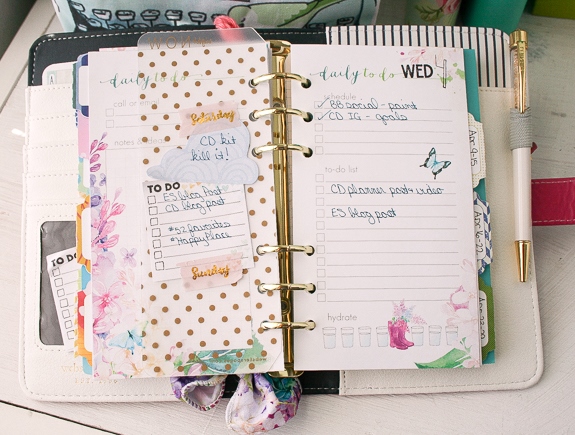 daily to do
call or email
Saturday
CD kit
kill it!
TO DO
ES blog Post
CD blog post
#52 favorites
#HappyPlace
Sunday
TO DO
daily to do
WED 4
schedule
BB social - paint
CD IG - goals
to-do list
CD planner post + video
ES blog post
hydrate
Apr 9-15